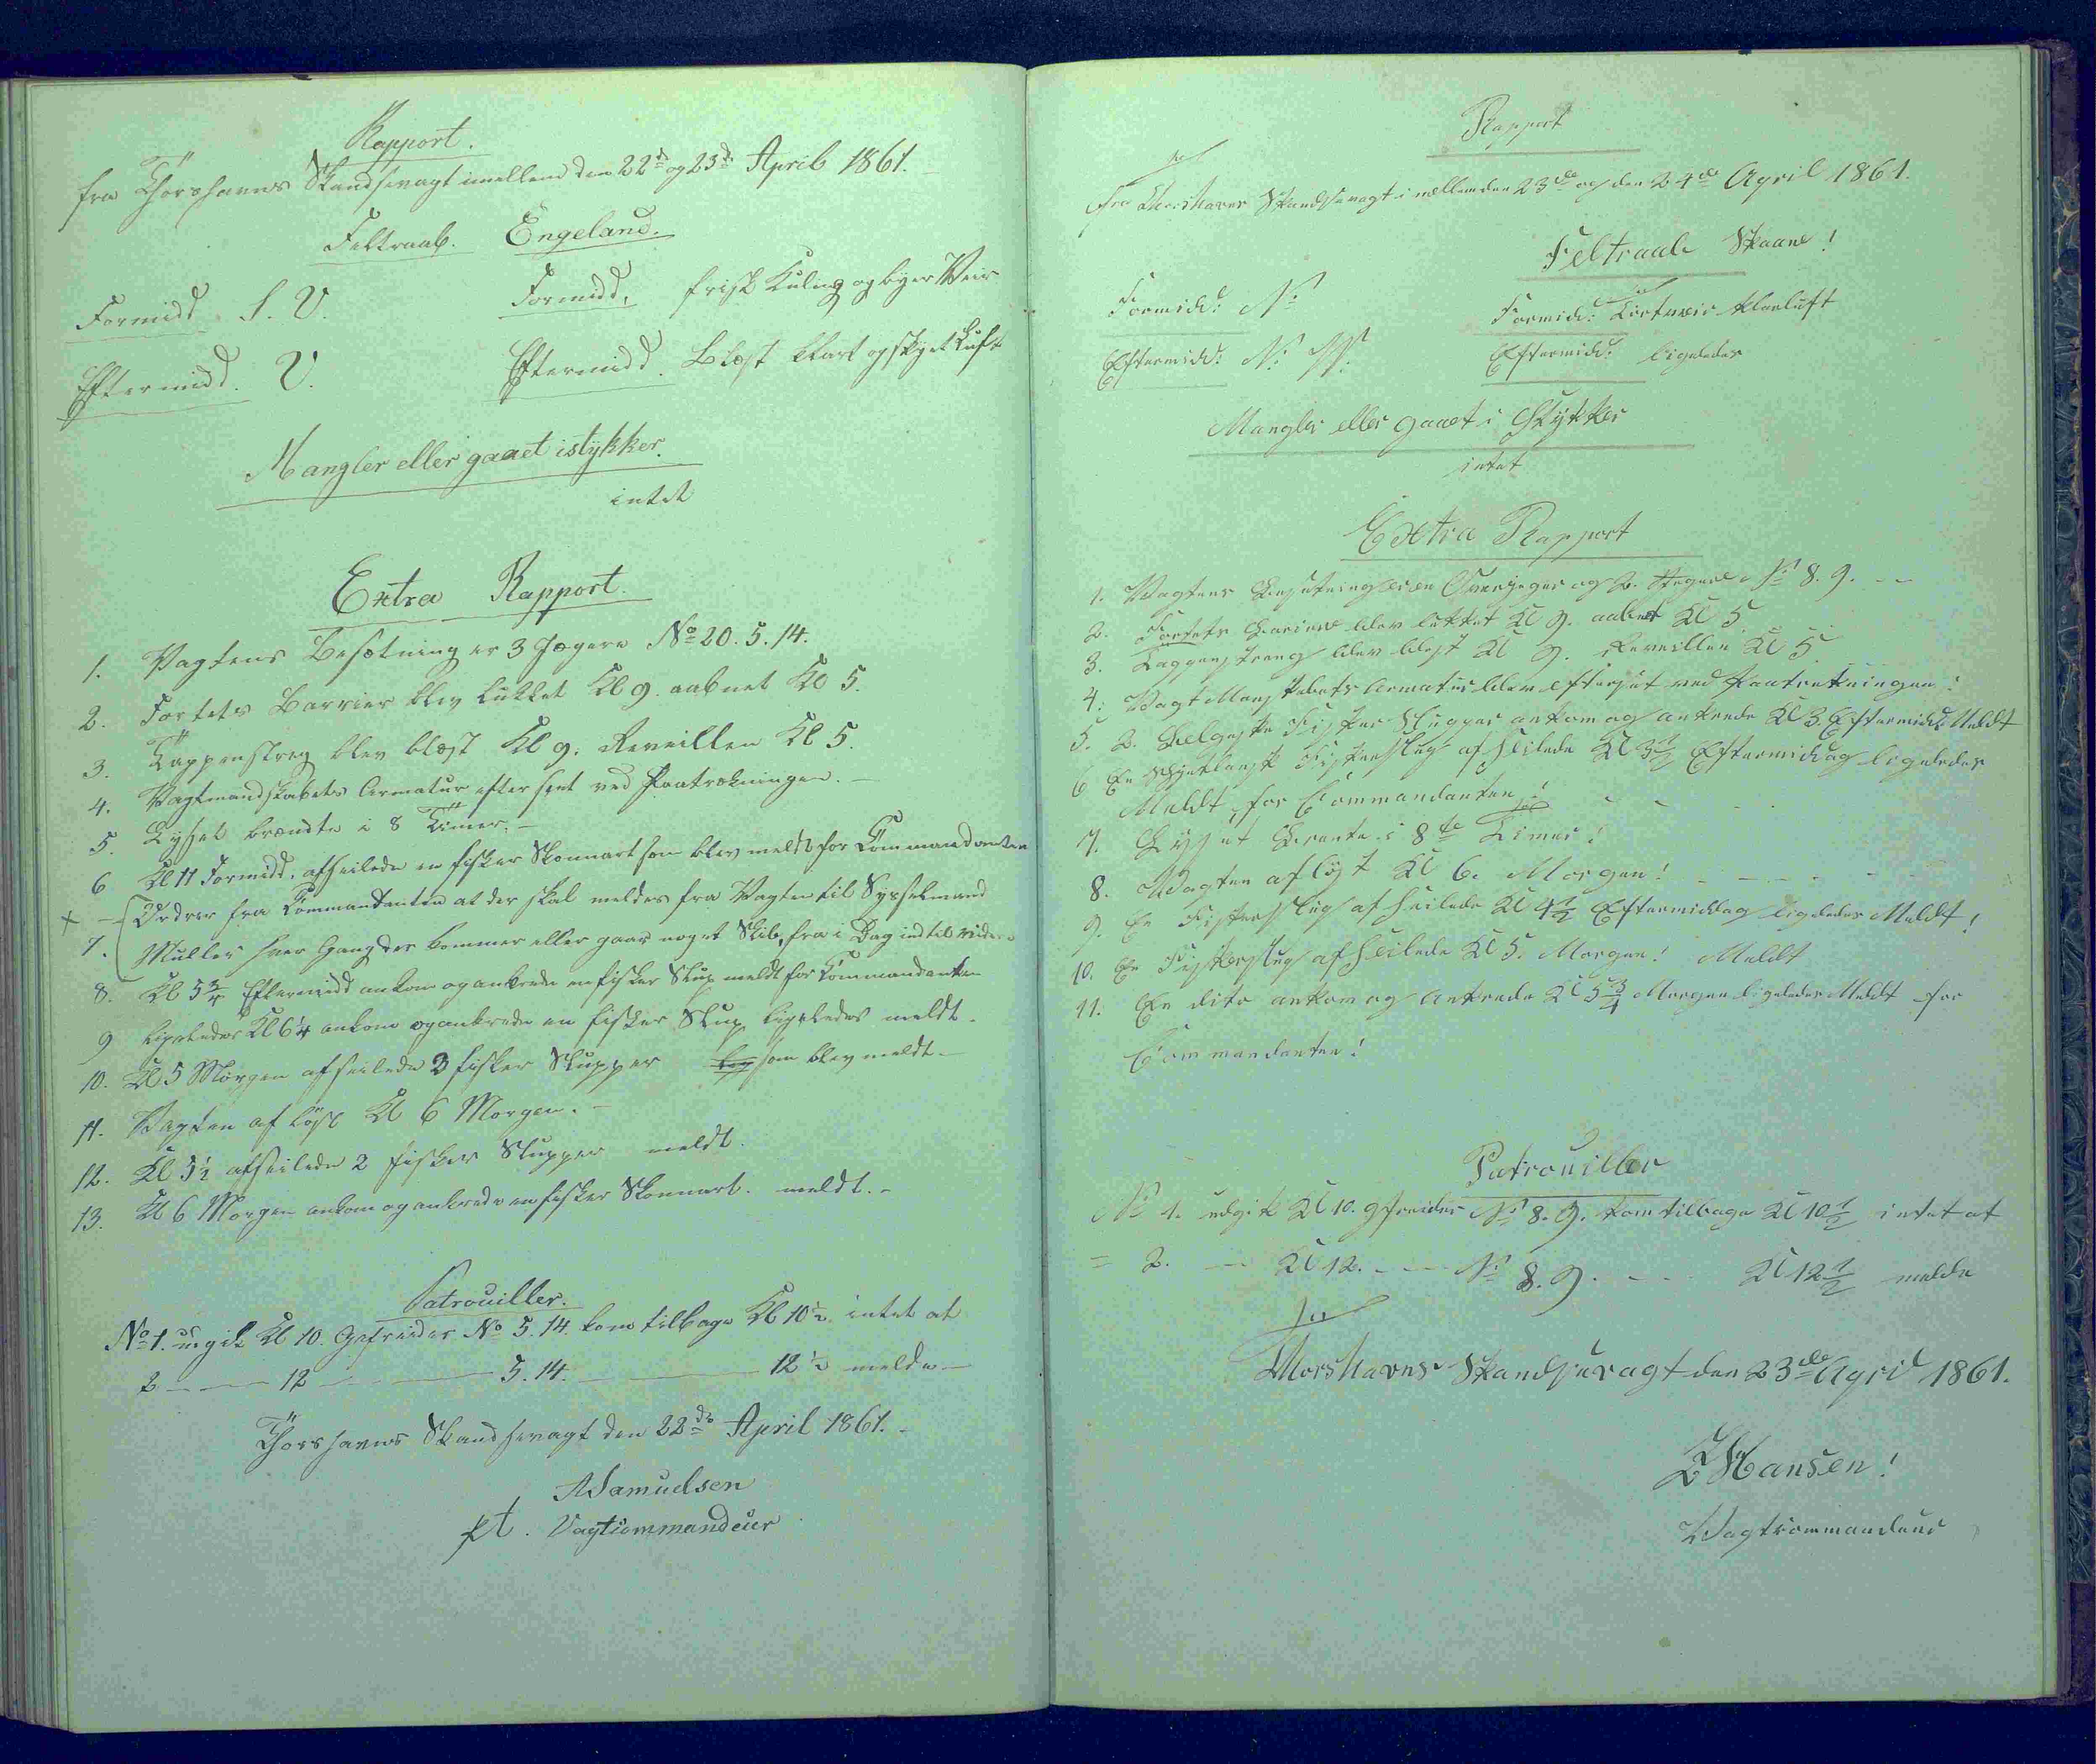 Rapport.
fra Thorshavns Skandsevagt imellem den 22d og 23d April 1861.
Feltraab. Engeland.
Formidd. S. V. Formidd. frisk Kuling og byer Veir
Eftermidd. V. Eftermidd. Blæst klart og skyet Luft
Mangler eller gaaet istykker.
intet
Extra Rapport.
1. Vagtens Besætning er 3 Jægere No 20. 5. 14.
2. Fortets Barrier blev lukket Kl 9. aabnet Kl 5.
3. Tappenstreg blev blæst Kl 9. Reveillen Kl 5.
4. Vagtmandskabets Armatur efterseet ved Paatrækningen. –
5. Lyset brændte i 8 Timer. –
6 Kl 11 Formidd. afseilede en fisker Skonnart som blev meldt for Commandanten
+ – Ordrer fra Commandanten at der skal meldes fra Vagten til Sysselmand
7. Müller hver Gang der kommer eller gaar noget Skib, fra i Dag indtil videre
8. Kl 5 3/4 Eftermidd ankom og ankrede en fisker Slup meldt for Commandanten
9 ligeledes Kl 6 1/4 ankom og ankrede en fisker Slup ligeledes meldt.
10. Kl 5 Morgen afseilede 3 fisker Slupper som blev meldt. –
11. Vagten afløst Kl 6 Morgen. –
12. Kl 5 1/2 afseilede 2 fisker Slupper meldt.
13. Kl 6 Morgen ankom og ankrede en fisker Skonnart. meldt. –
Patrouiller.
No 1. udgik Kl 10. Gefreider No 5. 14. kom tilbage Kl 10 1/2. intet at
2 — — 12 — — 5. 14. — — 12 1/2 melde —
Thorshavns Skandsevagt den 22de April 1861. –
ASamuelsen
pt. Vagtcommandeur
Rapport
Fra Thorshavns Skandsevagt imellem den 23de og den 24de April 1861.
Feltraab Skaane!
Formidd: N: Formidd: Tørtveir klarluft
Eftermidd: N: W: Eftermidd: ligeledes
Mangler eller gaaet i Stykker
intet
Extra Rapport
1. Vagtens Besætning er en Overjæger og 2. Jægere No 8. 9. – –
2. Fortets Bariere blev lukket Kl 9. aabnet Kl 5
3. Tappenstreng blev blæst Kl 9. Reveillen Kl 5
4. Vagt Mandskabets Armatur blev efterset ved Paatrækningen!
5. 2. Belgiske Fisker Slupper ankom og ankrede Kl 3. Eftermidd: Meldt
6 En Schjetlansk Fiskerslup afseilede Kl 3 1/2 Eftermiddag ligeledes
Meldt for Commandanten!
7. Lyset Brænte i 8te Timer!
8. Vagten afløst Kl 6. Morgen! – – –
9. En Fiskerslup afseilede Kl 4 1/2 Eftermiddag ligeledes Meldt!
10. En Fiskerslup afseilede Kl 5. Morgen! Meldt
11. En dito ankom og Ankrede Kl 5 3/4 Morgen ligeledes Meldt for
Commandanten!
Patrouiller
No 1. udgik Kl 10. Gefreider No 8. 9. kom tilbage Kl 10 1/2 intet at
= 2. — Kl 12. – – No 8. 9. – – – Kl 12 1/2 melde
Thorshavns Skandsevagt den 23de April 1861.
Hansen!
Vagtcommandeur